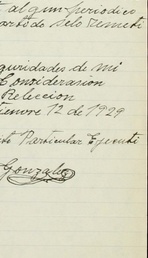 algun periodico
selo Remeti
guridades de mi
Considerasion
Releccion
tienvre 12 de 1929
Particular Ejecuti
Gonzalez